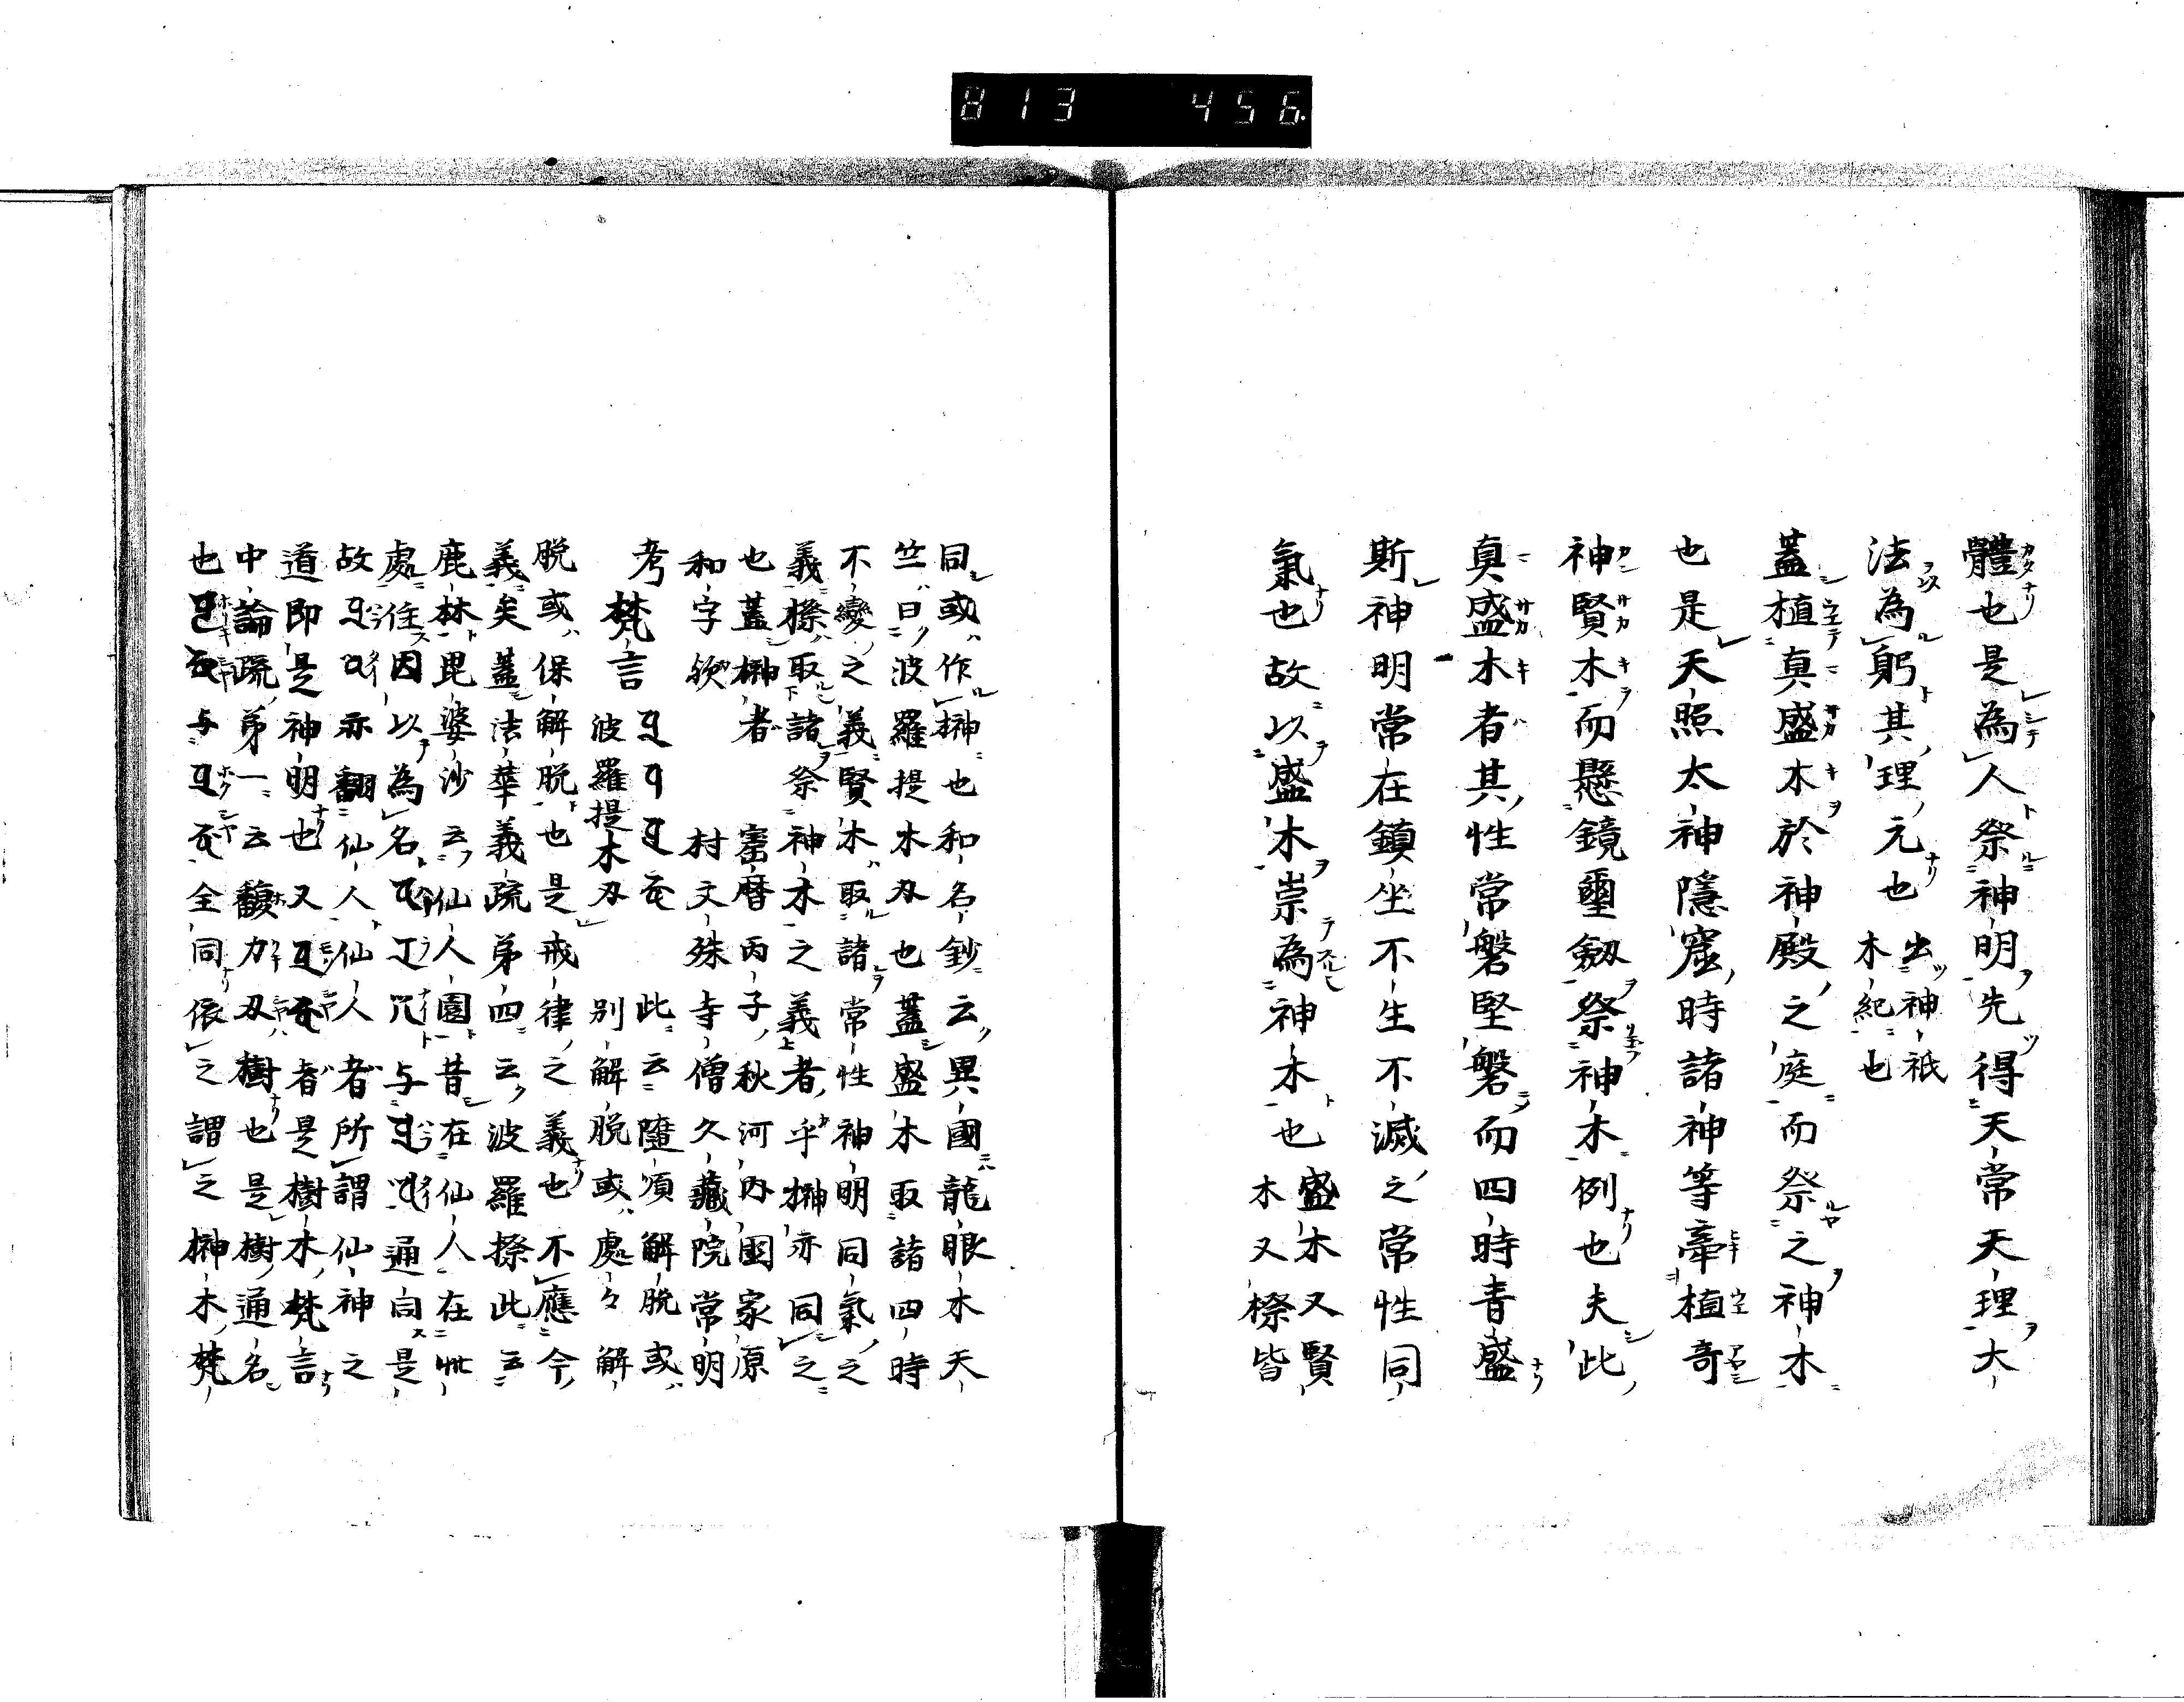 813 456
體也是為人祭神明先得天常天理大
法為躬其理元也 出神祇
木紀也
蓋植真盛木於神殿之庭而祭之神木
也是天照太神隱窟時諸神等牽植奇
神賢木而懸鏡璽劔祭神木例也夫此
真盛木者其性常磐堅磐而四時青盛
斯神明常在鎮坐不生不滅之常性同
氣也故以盛木崇為神木也 盛木又賢
木又榇皆
同或作榊也和名鈔云異國龍眼木天
竺曰波羅提木刄也蓋盛木取諸四時
不變之義賢木取諸常性神明同氣之
義榇取諸祭神木之義者乎榊亦同之
也蓋榊者 寳曆丙子秋河内國家原
和字欤 村文殊寺僧久藏院常明
考梵言 波羅提木刄 此云隨順解脱或
別解脱或處々解
脱或保解脱也是戒律之義也不應今
義矣蓋法華義疏第四云波羅搽此云
鹿林毘婆沙云仙人園昔在仙人在此
處住因以為名 与 通向是
故 亦翻仙人仙人者所謂仙神之
道即是神明也又 者是樹木梵言
中論疏第一云馥力刄樹也是樹通名
也 与 全同依之謂之榊木梵